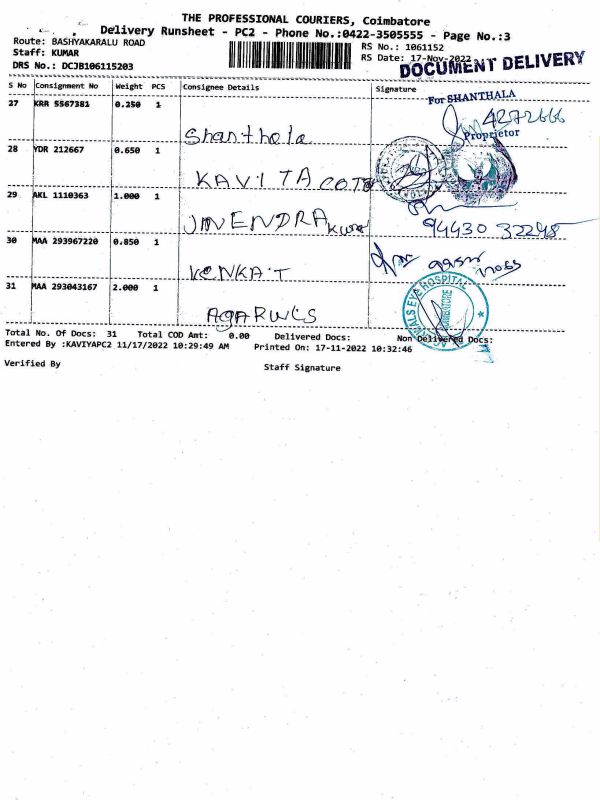 THE PROFESSIONAL COURIERS, Coimbatore
Delivery Runsheet - PC2 - Phone No.:0422-3505555 - Page No.:3
Route: BASHYAKARALU ROAD
RS No.: 1061152
Staff: KUMAR
RS Date: 17-Nov-2022
DRS No.: DCJB106115203
DOCUMENT DELIVERY
S No Consignment No Weight PCS Consignee Details Signature
For SHANTHALA
27 KRR 5567381 0.250 1
4272666
Shanthala
Proprietor
28 YDR 212667 0.650 1
KAVITA COTO
29 AKL 1110363 1.000 1
JINENDRA
94430 32248
30 MAA 293967220 0.850 1
VENKAT
31 MAA 293043167 2.000 1
AGARWLS
AGARWALS EYE HOSPITAL
COIMBATORE
Total No. Of Docs: 31 Total COD Amt: 0.00 Delivered Docs: Non Delivered Docs:
Entered By :KAVIYAPC2 11/17/2022 10:29:49 AM Printed On: 17-11-2022 10:32:46
Verified By
Staff Signature